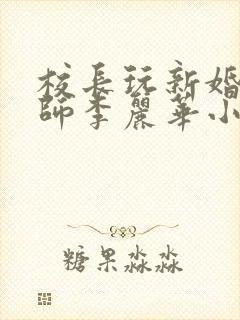 校長玩新婚
師李麗華小
糖果淼淼